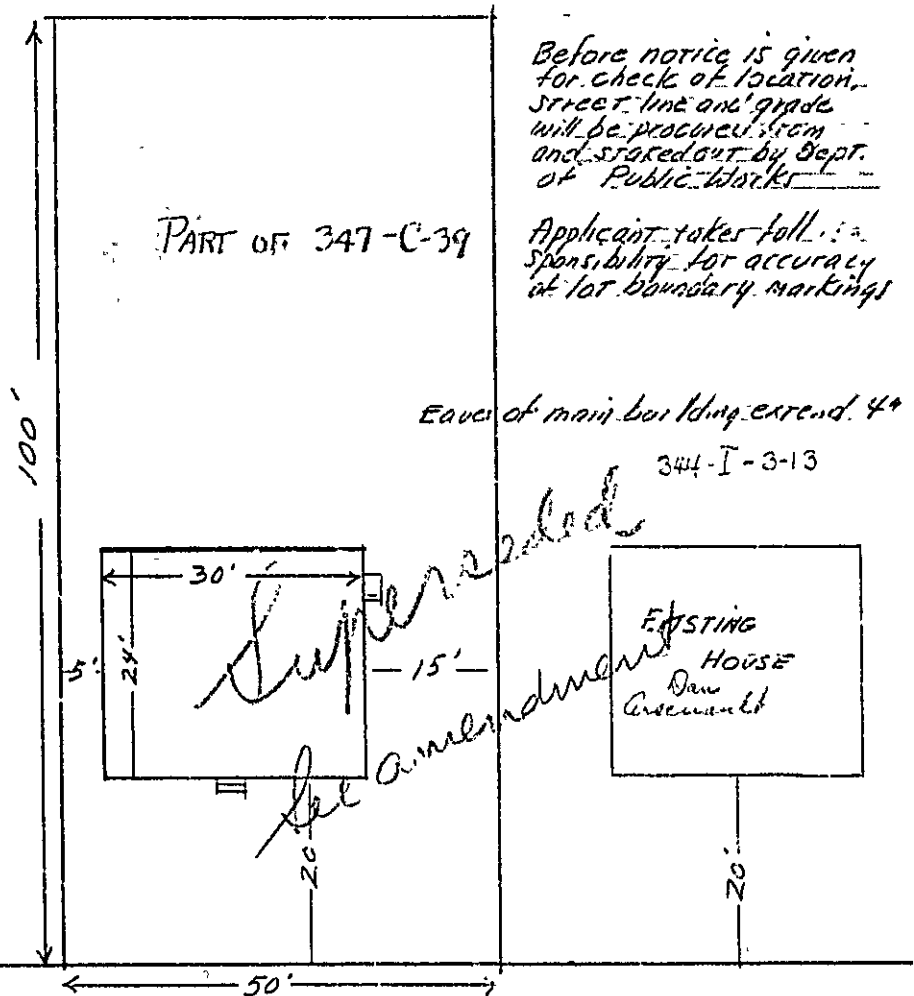 Before notice is given
for check of location,
street line and grade
will be procured from
and staked out by Dept.
of Public Works
PART OF 347-C-39
Applicant takes full
sponsibility for accuracy
of lot boundary markings
100'
Eaves of main building extend 4"
344-I-3-13
Superseded
See amendment
30'
24'
5'
15'
EXISTING
HOUSE
Dan
20'
20'
50'